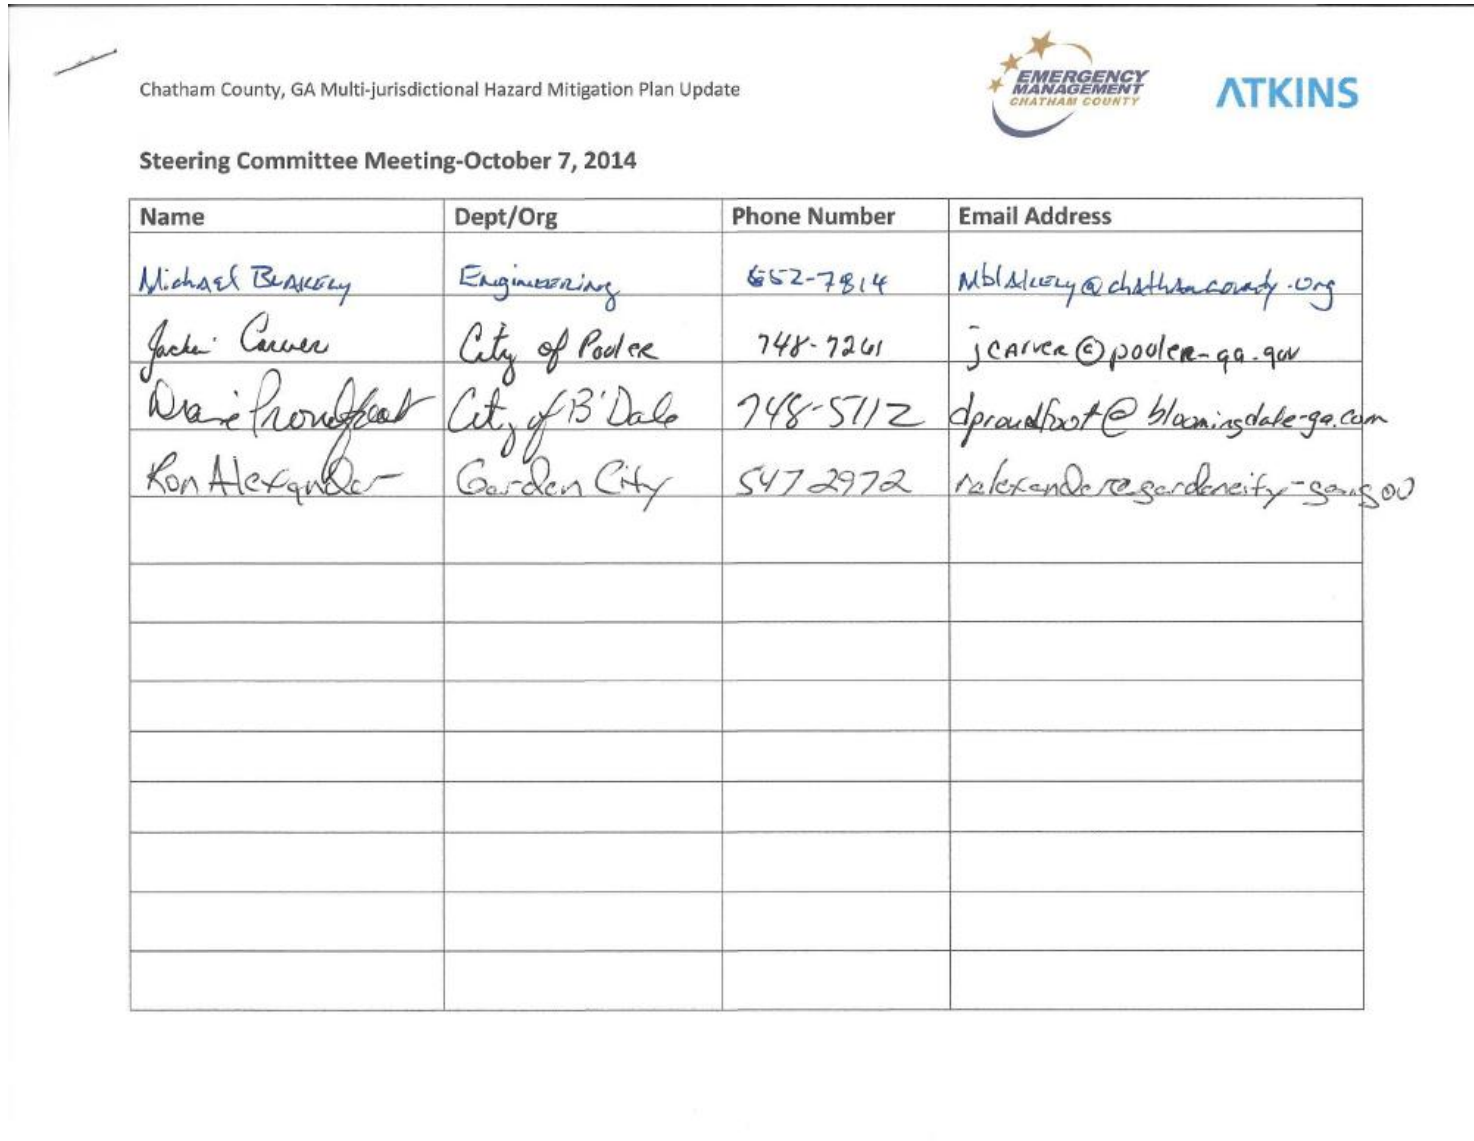 Chatham County, GA Multi-jurisdictional Hazard Mitigation Plan Update
EMERGENCY
MANAGEMENT
CHATHAM COUNTY
ATKINS
Steering Committee Meeting-October 7, 2014
Name Dept/Org Phone Number Email Address
Michael Blakely Engineering 652-7814 mblakely@chathamcounty.org
Jackie Carver City of Pooler 748-7261 jcarver@pooler-ga.gov
Proudfoot City of B'Dale 748-5112 dproudfoot@bloomingdale-ga.com
Ron Alexander Garden City 547 2972 ralexander@gardencity-ga.gov